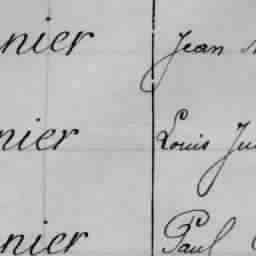 nier Jean
nier Louis
nier Paul